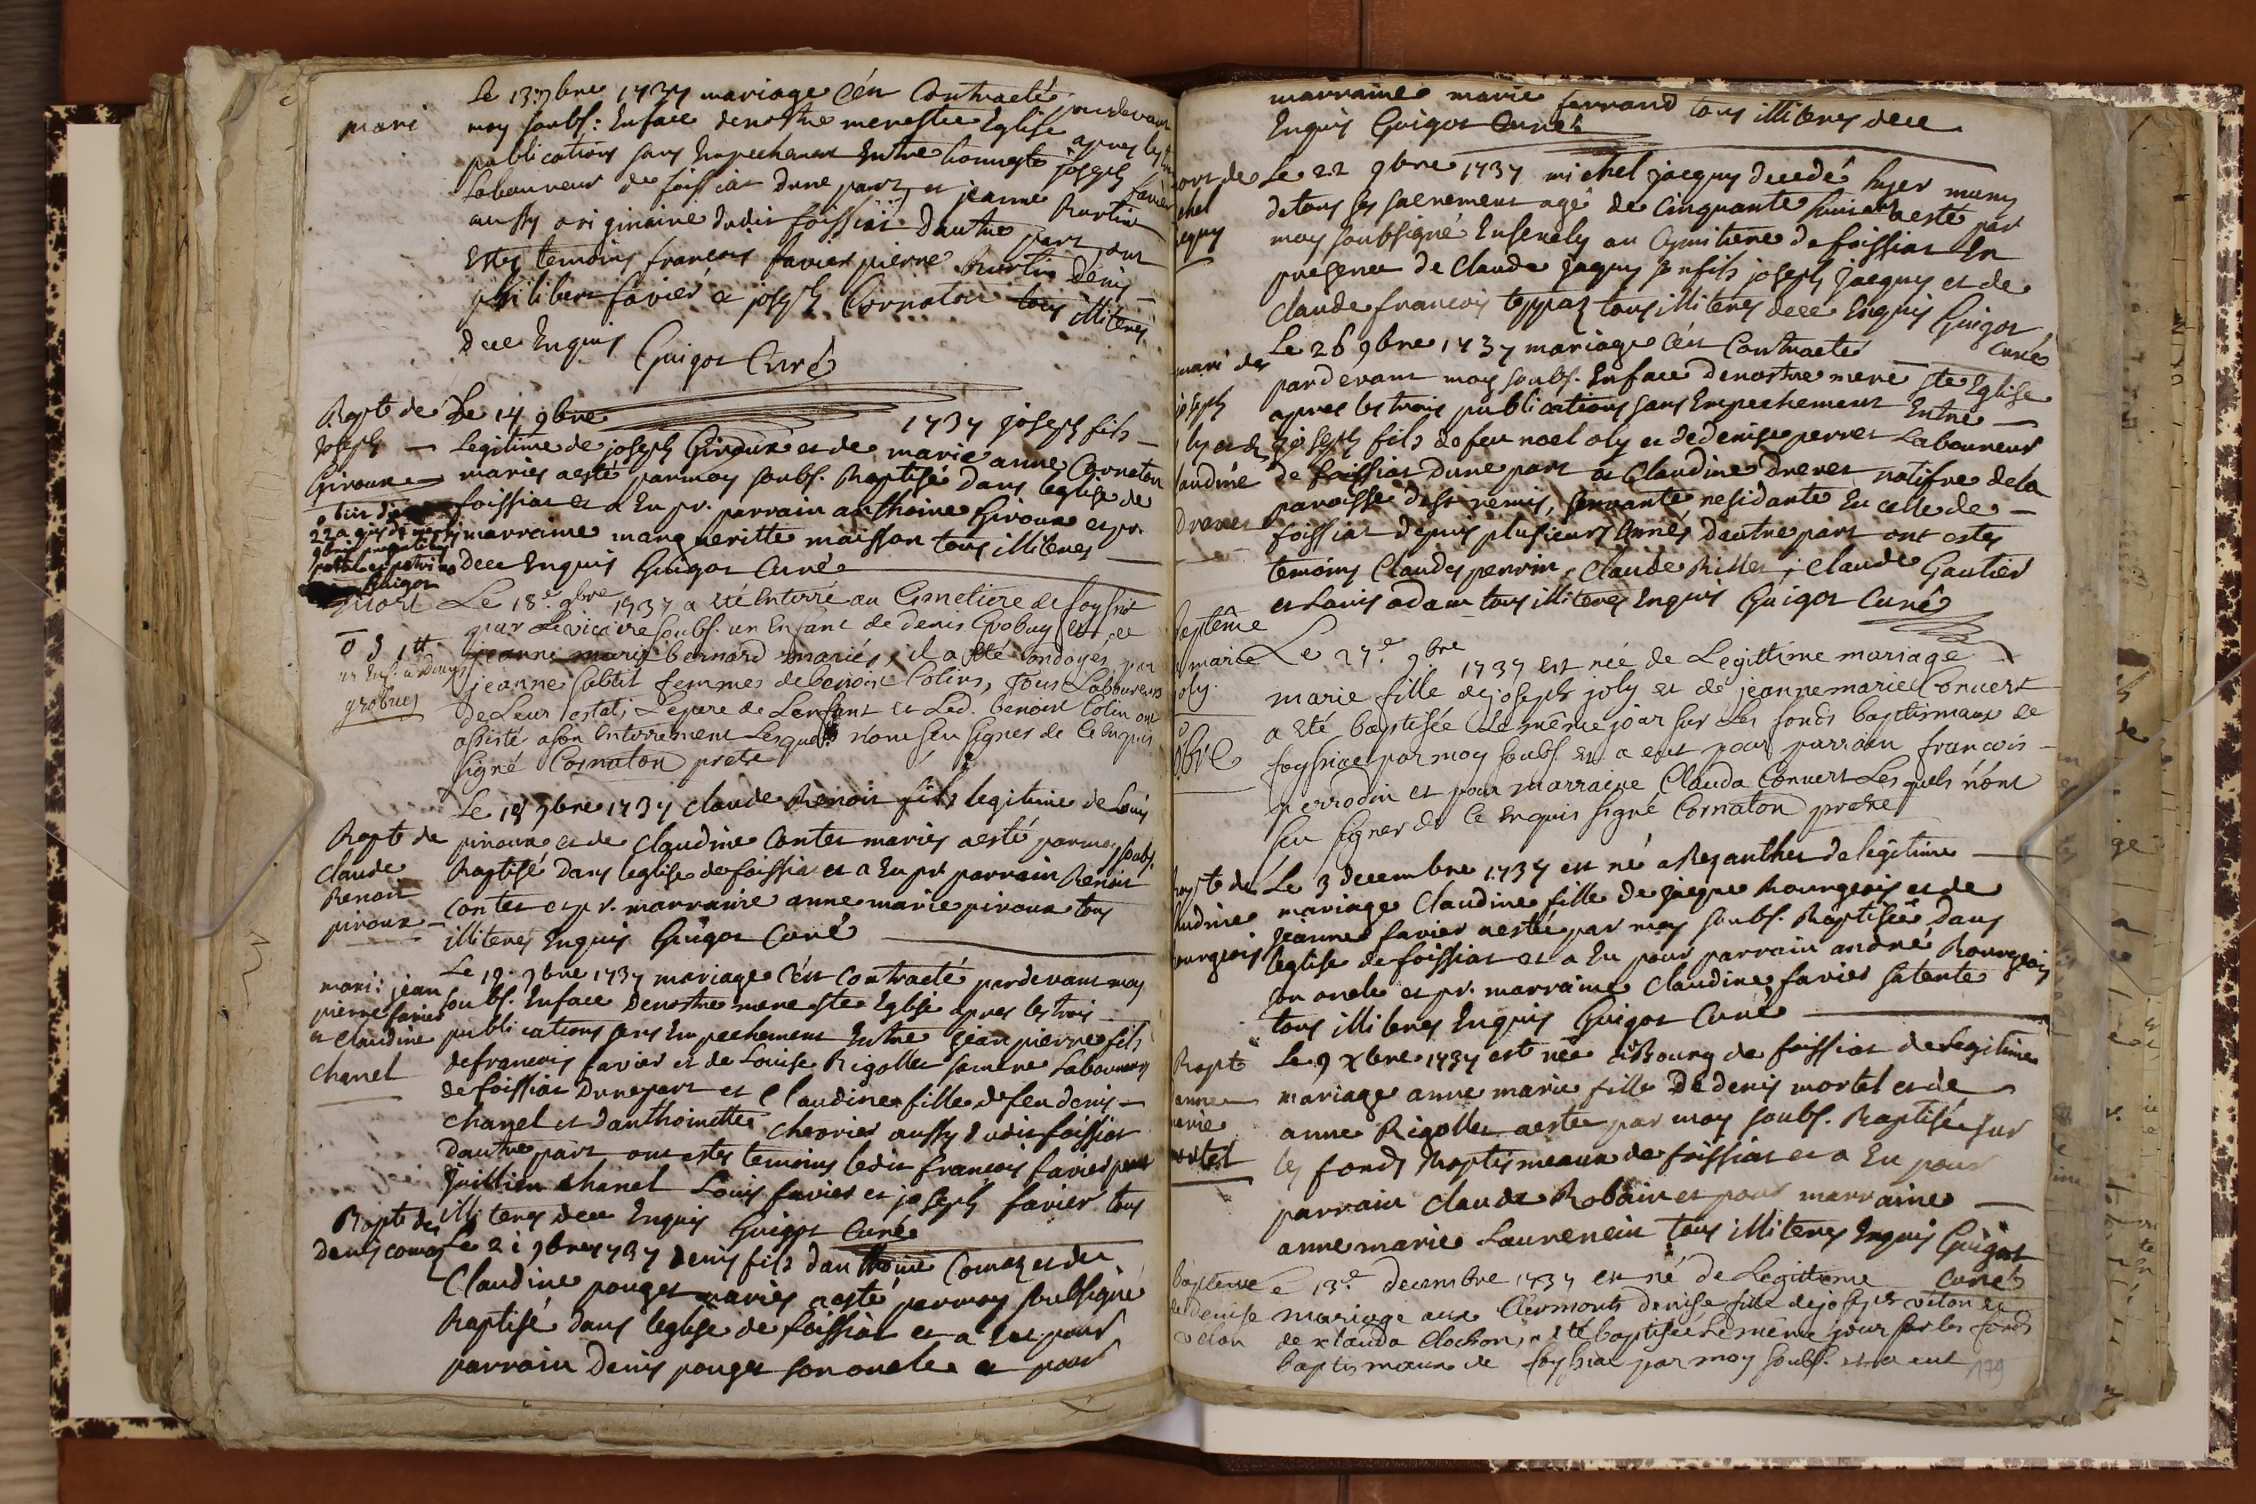 mari
Le 13 9bre 1737 mariage c'est contracté pardevant
moy soubs: Enface denostre mere ste Eglise apres les
publications sans Empechement Entre honneste joseph favier
Laboureur de foissiat dune part et jeanne Burtin
aussy originaire dudit foissiat dautre part ont
estes temoins françois favier pierre Burtin denis
philibert favier et joseph Cornaton tous illiteres
dece Enquis
Guigot Curé
Bapt de
Joseph
Giroux
Le 14 9bre 1737 joseph fils
Legitime de joseph Giroux et de marie anne Cornaton
maries aesté parmoy soubs. Baptisé dans leglise de
foissiat et a Eu pr. parrain anthoine Giroux et pr.
marraine margueritte maisson tous illiteres
dece Enquis Guigot Curé
mort
grobuey
Le 18e 9bre 1737 a été Enterré au Cimetiere de foyssiat
par Le vicaire soubs. un Enfant de denis Grobuy et de
jeanne marie bernard mariés, il a été ondoyé par
jeanne femmes de benoist Colin, tous Laboureurs
de Leur estat, Le pere de Lenfant et Led. benoist Colin ont
assisté ason Enterrement Lesquels n'ont sçu signer de ce Enquis
signé Cornaton pretre
Bapt de
Claude
Benoit
piroux
Le 18 9bre 1737 Claude Benoit fils legitime de Louis
piroux et de Claudine Contet maries aesté parmoy soubs.
Baptisé dans leglise de foissiat et a Eu pr parrain Benoit
Contet et pr. marraine anne marie piroux tous
illiteres Enquis Guigot Curé
mari: jean
pierre favier
et Claudine
Chanel
Le 19 9bre 1737 mariage c'est contracté pardevant moy
soubs. Enface denostre mere ste Eglise apres les trois
publications sans Empechement Entre jean pierre fils
defrancois favier et de Louise Rigollet sa mere Laboureurs
de foissiat dune part et Claudine fille defeu denis
Chanel et danthoinette Chevrier aussy dudit foissiat
dautre part ont estes temoins ledit francois favier
Guillien Chanel Louis favier et joseph favier tous
illiteres dece Enquis Guigot Curé
Bapt de
denis comas
Le 21 9bre 1737 denis fils danthoine Comas et de
Claudine pouget maries aesté parmoy soubsigné
Baptisé dans leglise de foissiat et a Eu pour
parrain denis pouget son oncle et pour
marraine marie ferrand tous illiteres dece
Enquis Guigot Curé
Le 22 9bre 1737 michel jacquy decedé hyer muny
detous ses sacrement agé de Cinquante huit ans aesté par
moy soubsigné Ensevely au Cymitiere de foissiat En
presence de Claude jaquy son fils joseph jacquy et de
Claude francois teppaz tous illiteres dece Enquis Guigot
Curé
mari de
joseph
Le 26 9bre 1737 mariage c'est Contracté
pardevant moy soubs. Enface denostre mere ste Eglise
apres les trois publications sans Empechement Entre
joseph fils de feu noel oly et de denise perret Laboureur
de foissiat dune part et Claudine drevet natifve dela
paroisse de st remis, servante residante En celle de
foissiat depuis plusieurs années dautre part ont estes
temoins Claude perrin, Claude Billet, Claude Gautier
et Louis adam tous illiteres Enquis Guigot Curé
marie
joly
Le 27e 9bre 1737 est née de Legittime mariage
marie fille de joseph joly et de jeanne marie Convert
a été baptisée Le même jour sur Les fonds baptismaux de
foyssiat par moy soubs. et a eut pour parrain francois
perrodin et pour marraine Clauda Convert Lesquels n'ont
sçu signer de ce Enquis signé Cornaton pretre
Le 3 decembre 1737 est né a Bezanthet de legitime
mariage Claudine fille de jacque Bourgeois et de
jeanne favier aesté par moy soubs. Baptisée Dans
leglise de foissiat et a Eu pour parrain andré Bourgeois
son oncle et pr. marraine Claudine favier sa tente
tous illiteres Enquis Guigot Curé
Bapt
anne
marie
mortel
Le 9 xbre 1737 est née à Bourg de foissiat de Legitime
mariage anne marie fille de denis mortel et de
anne Rigollet aesté par moy soubs. Baptisée sur
les fonds Baptismeaux de foissiat et a Eu pour
parrain Claude Robain et pour marraine
anne marie Laurencin tous illiteres Enquis Guigot
Curé
Bapteme
de denise
veton
Le 13e decembre 1737 est né de Legitime
mariage aux Clermonts denise fille de joseph veton et
de Clauda Clochon, a été baptisée Le même jour sur les fonds
baptismaux de foyssiat par moy soubs. et a eut